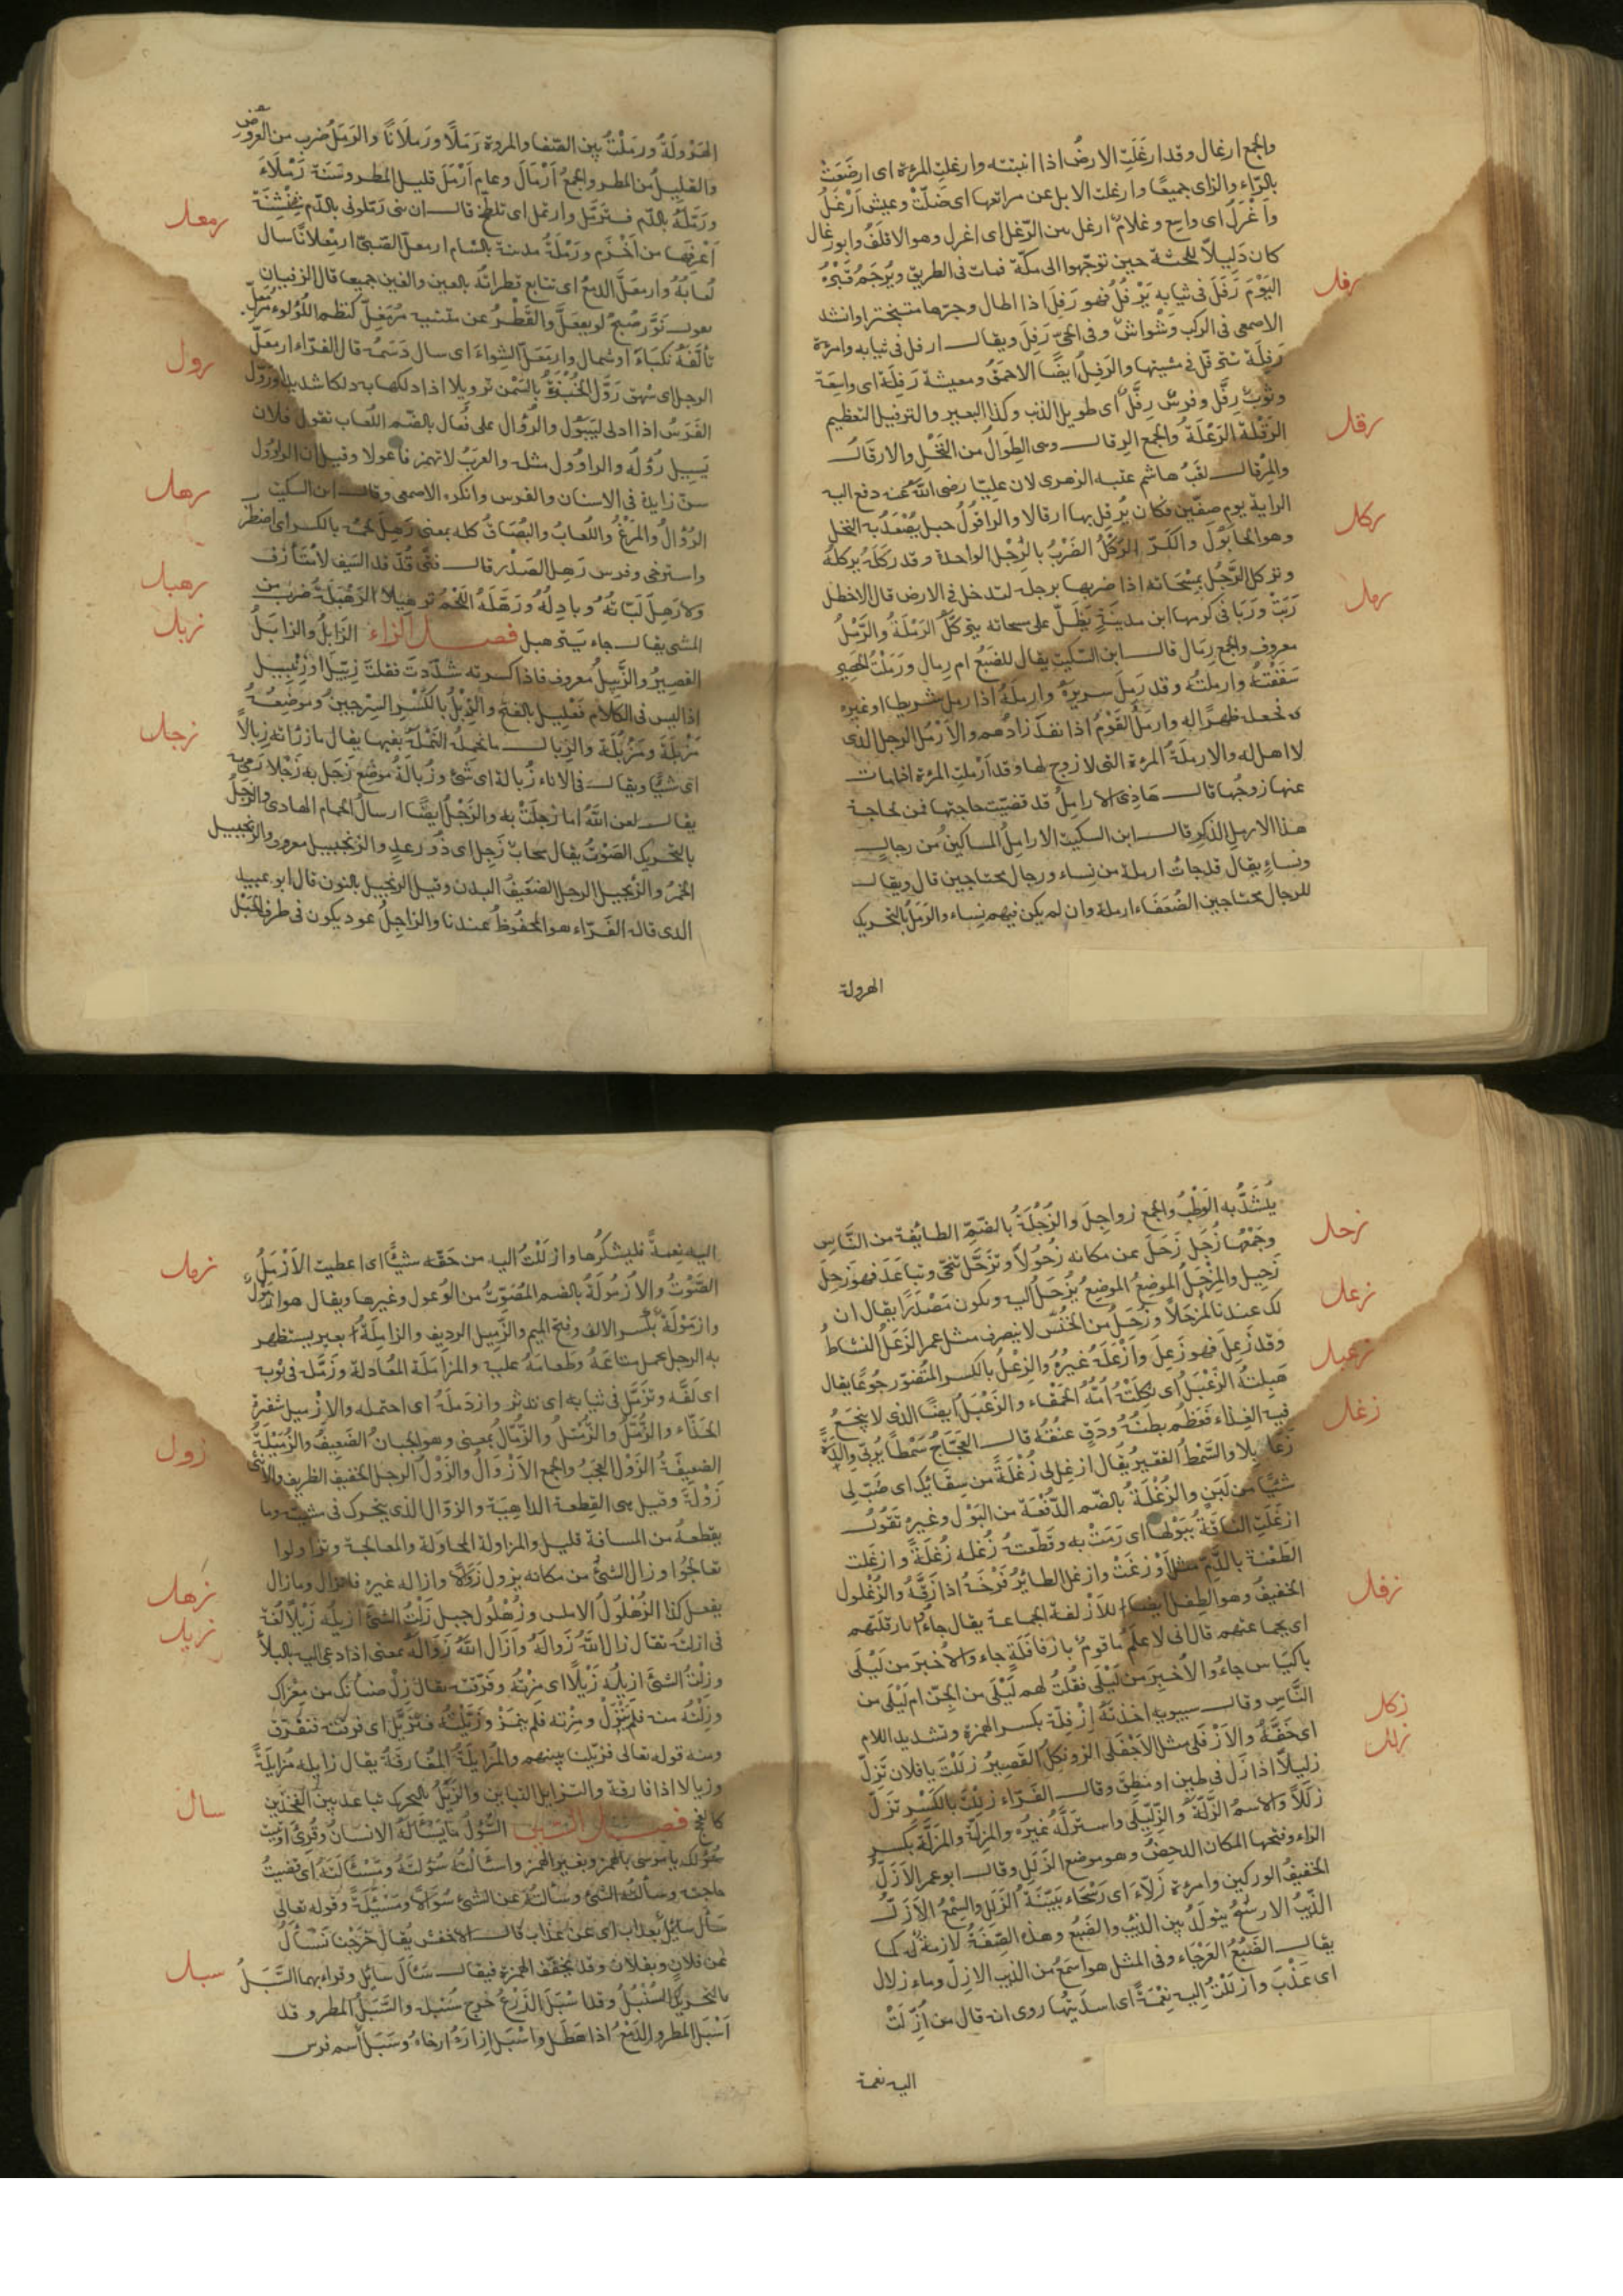 والجمع ارغال وقد ارغَلَتِ الارضُ اذا انبتته وارغلتِ المرءة اى ارضَعَتْ
بالرّاء والزاى جميعًا وارغلت الابل عن مراتعها اى ضَلّتْ وعيش اَرْغَلُ
واَغْرَلُ اى واسع وغلامٌ ارغل بيّن الرّغل اى اغرل وهو الاقلفُ وابو رغال
كان دَلِيلاً للحبشة حين توجّهوا الى مكّة فمات فى الطريق ويُرجَمُ قَبْرُهُ
رفل
اليَوْمَ رَفَلَ فى ثيابه يَرْفُلُ فهو رَفِلَ اذا اطال وجرّها متبخترا وانشد
الاصمعى فى الركب وَشْواشٌ وفى الحىّ رَفِلَ ويقال ارفل فى ثيابه وامرءة
رَفِلَة تترفّل فى مشيتها والرَفِلُ ايضًا الاحمق ومعيشة رَفِلَة اى واسِعَة
وثَوبٌ رِفَلّ وفرسٌ رِفَلٌّ اى طويل الذنب وكذا البعير والترفيل التعظيم
رقل
الرَقْلَة الرَعْلَةُ والجمع الرقال وهى الطِوَالُ من النَّخْلِ والارقَالُ
والمِرْقال لقبُ هاشم عتبه الزهرى لان عليّا رضى اللّه عنه دفع اليه
الراية يوم صفّين فكان يُرقِل بها ارقالا والراقُولُ حبل يُصْعَدُ به النخل
ركل
وهو الحابُولُ والكَرّ الرَكلُ الضَرْبُ بالرِجْل الواحدة وقد رَكَلَهُ يركله
وتركل الرَّجُل بمِسْحَاته اذا ضربها برجله لتدخل فى الارض قال الاخطل
رمل
رَبَتْ وَرَبَا فى كرمها ابن مدينَةٍ يَظَلّ على مسحاته يتركّلُ الرَمْلَةُ والرَّمْلُ
معروف والجمع رِمَال قال ابن السكيت يقال للضَبُع ام رِمال ورَمَلْتُ الحَصِير
سَفَفْتُهُ وارملتُه وقد رَمَلَ سريرَهُ وارملَهُ اذا رمل شريطا اوغيره
فجعله ظهرًا له وارمل القَوْمُ اذا نفدَ زادُهم والاَرْمَلُ الرجل الذى
لا اهل له والارملَةُ المرءة التى لا زوج لها وقد اَرْملت المرءة اذا مات
عنها زوجُها قال هَاذِى الارامِلُ قد قضيّت حاجتها فمن لحاجة
هذا الارمل الذكرِ قال ابن السكيت الارامِلُ المساكينُ من رجالٍ
ونساءٍ يقال قد جاءت ارملة من نِساء ورجال محتاجين قال ويقال
للرجال محتاجين الضُعَفَاء ارملة وان لم يكن فيهم نِساء والرَمَلُ بالتحريك
الهرولة
الهَرْوَلَةُ ورمَلْتُ بين الصّفا والمروة رَمَلًا ورَملَانًا والرَمَلُ ضرب من العَروُض
والقليلُ من المطر والجمعُ اَرْمَالَ وعام اَرْمَلَ قليل المطر وسَنَة رَمْلَاءَ
ورَمّلَهُ بالدّم فترمّل وارتمل اى تلطخ قال ان بنى رَمّلونى بالدّم شِنْشِنَة
رمعل
اَعْرِفُها من اَخْزَم ورَمْلَةُ مدينة بالشام ارمعلّ الصَبىّ ارمِعْلانًا سال
لُعَابُهُ وارمعَلَّ الدمعُ اى تتابع قطرانُه بالعين والغين جميعا قال الزفيان
يقول نَوَّرَ صُبحٌ لو يفعلّ والقَطْرُ عن متنيه مُرْمَعِلّ كنظم اللؤلوء مُرمَعِلّ
تَلُفّهُ نكباءُ او شمال وارمَعَلّ الشِواء اى سال دَسَمُه قال الفرّاء ارمعلّ
رول
الرجل اى شهق رَوَّل الخُبْزَةَ بالسَمْن ترويلا اذا دلكها به دلكا شديدا ورَوَّل
الفَرَسُ اذا ادلى ليَبُول والرُوَال على فُعَال بالضّم اللُعاب تقول فلان
يَسِيل رُوَالُه والراؤول مثله والعربُ لا تهمز فاعولا وقيل ان الراوول
سنّ زايدة فى الاسنان والفرس وانكره الاصمعى وقال ابن السكيت
رهل
الرُوَالُ والمَرْغُ واللُعابُ والبُصَاقُ كله بمعنى رَهِلَ لحمُه بالكسر اى اضطرَبَ
واسترخى وفرس رَهِل الصَدْر قال فتًى قُدّ قد السَيف لامُتَآزف
رهبل
ولا رَهِلَ لَبّاتُهُ وبادِلُه ورَهَّلَهُ اللحْمُ ترهيلا الرَهْبَلَة ضَرب من
زبل
المشى يقال جاء يترهبل فصل الزاء الزَابَلُ والزابَلُ
القصِيرُ والزَّبِيلُ معروف فاذا كسرته شَدّدتَ فقلتَ زِبّيل او زِنْبِيل
اذ ليس فى الكلام فَعْليل بالفتح والزِبْلُ بالكَسْرِ السِرْجينُ وموضِعُه
مَزْبَلَة ومَزْبُلَة والزِبال ما تحملُه النَمْلَة بفيها يقال ما رزأته زِبالاً
زجل
اى شَيئًا ويقال فى الاناء زُبالة اى شَئ وزُبالَة موضع زَجَل به زَجْلا رمى
يقال لعن اللّه اما زَجَلَتْ به والزَجْلُ ايضًا ارسال الحمام الهادى والزَجَلُ
بالتحريك الصَوْتُ يقال سحاب زَجِل اى ذُو رعدٍ والزنجبيل معروف والزنجبيل
الخَمْرُ والزنجيل الرجل الضعِيفُ البدن وقيل الزنجيل بالنون قال ابو عبيد
الذى قاله الفَرّاء هو المحفوظ عندنا والزاجِلُ عود يكون فى طرف الحَبْل
يُشَدُّ به الوَطْبُ والجمع زواجِلَ والزُجْلَةُ بالضَمّ الطايفة من النَّاسِ
زحل
وجَمْعُها زُجَل زَحَلَ عن مكانه زُحُولاً وتزحَّل تنحّى وتباعَدَ فهو زحِلَ
زَحِيل والمزْحَلُ الموضِعُ الموضع يُزْحَلُ اليه ويكون مَصْدَرًا يقال ان
زعل
لك عندنا لَمزحَلاً وزُحَلُ من الخُنّس لا ينصرف مثل عمر الزَعَلُ النشاطُ
وقد زَعِلَ فهو زَعِلَ واَزْعَلَه غيرُه والزِعْلُ بالكسر المتُضوّر جُوعًا يقال
زعبل
هَبِلتهُ الزَعْبَلُ اى ثكِلَتْهُ اُمّه الحَمْقَاء والزَعْبَلُ ايضًا الذى لا ينجَعُ
فيه الغِذاء فعَظُم بطنُهُ ودَقّ عنقُه قال العَجّاج سَمْطًا يُربّى وِلْدَةً
زغل
زَعَابِلا والسَّمْطُ الفقير يُقال ازغِل لى زُغْلَةً من سقائِك اى صُبّ لى
شَيئًا من لَبَنٍ والزُغْلَةُ بالضّم الدُفْعَة من البَوْل وغيره تقول
ازغَلَتِ الناقَةُ ببَوْلِها اى رَمَتْ به وقَطّعتْهُ زُغله زُغلَةً وازغَلت
الطَعْنة بالدَّم مثل اَوْزغَتْ وازغل الطايُر فَرْخَهُ اذا زَقَّهُ والزُغلول
زفل
الخفيفُ وهو الطِفل ايضا الأزفلة الجماعة يقال جاءوا بازفلتهم
اى بجماعتهم قال انى لاعلَمُ ما قومٌ بازفلَةٍ جاءوا لاُخبِرَ من لَيْلَى
باكيَاسِ جاءُوا لاُخبِرَ من لَيْلَى فقُلتُ لهم لَيْلَى من الجِنّ ام لَيْلَى من
النَّاسِ وقال سيبويه اخذتهُ اِزْفِلّة بكسر الهمزة وتشديد اللام
زكل
اى خفّةُ والاَزْفَلَى مثل الاَجْفَلَى الزَونَكلُ القَصِيرُ زلَلْتَ يا فلان تَزِلّ
زلل
زلِيلاً اذا زَلّ فى طين او مَنْطِق وقال الفَرّاء زِلْتَ بالكَسْر تَزَلّ
زَلَلاً والاسمُ الزَلّة والزِلِّيلَى واستزلَّهُ غيرُه والمَزِلّة والمَزَلّة بكسر
الزاء وفتحها المكان الدحضُ وهو موضع الزَلَلِ وقال ابو عمر الأزَلّ
الخفيفُ الوركين وامرءة زَلّاءَ اى رَسْحَاء بَيّنَةُ الزَلَلِ والسِمْعُ الاَزَلّ
الذئِبُ الارسَحُ يتولّدُ بين الذئب والضَبُع وهذه الصِفَةُ لازمة له كما
يقال الضَبُعُ العَرْجَاء وفى المثل هو اسمَعُ من الذيب الازلّ وماء زلال
اى عَذْب وازلَلْتُ اليه نِعْمَةً اى اسدَيتُها روى انه قال من اُزِلّتْ
اليه نعمة
اليه نِعمةً فليشكُرها وازلَلْتُ اليه من حقّه شيئًا اى اعطيت الاَزْمَلُ
زمل
الصَوْتُ والاُزْمُولَةُ بالضم المُصَوّتُ من الوُعول وغيرها ويقال هو ازمَوْل
وازمَوْلَة بكسر الالف وفتح الميم والزَمِيل الرديف والزامِلَةُ بعيرٌ يستظهر
به الرجل يحمل متاعَهُ وطَعامَهُ عليه والمزامَلَة المُعادلة وزَمّله فى ثوبه
اى لَفَّه وتزَمَّل فى ثيابه اى تدثر وازدَملَهُ اى احتمله والاِزْميل شفرةُ
الحذّاء والزُمَّلُ والزُمَّيْلُ والزُمَّال بمعنى وهو الجبانُ الضَعِيفُ والزُمَّيْلَة
زول
الضعِيفَةُ الزَوْل العَجَبُ والجمع الاَزْوَالُ والزَوْلُ الرجل الخفيف الظريف والاُنثى
زَوْلَة وقيل هى القِطعة الداهِيَة والزوّال الذى يتحرك فى مشيته وما
يقطعهُ من المسافة قليل والمزاولة المحاوَلة والمعالجة وتزاولوا
تعالجُوا وزال الشئُ من مكانه يزول زَوَالًا وازاله غيره فانزال وما زال
زهل
يفعل كذا الزُهْلُولُ الاملس وزُهْلُول جبل زِلْتُ الشئ ازيله زَيْلاً لُغَة
زيل
فى ازلته تقال زال اللَّهُ زَوالَهُ واَزَال اللَّهُ زَوَالَهُ بمعنى اذا دعى اليه بالبلاء
وزِلْتُ الشئ ازيله زَيْلًا اى مِزْتهُ وفَرّقته يقال زِلْ ضَأنَك من مِعْزَاك
وزِلْتُه منه فلم يَنْزَلْ ومِزْته فلم ينمَزْ وزَيّلْتُه فتزَيّل اى فرّقتُه فتفَرّق
ومنه قوله تعالى فزيّلنا بينهم والمُزَايَلَةُ المُفَارقَةُ يقال زايله مُزايلَةً
وزيالا اذا فارقه والتزايل التباين والزَيَلُ بالتحريك تباعد بين الفَخذين
سال
كالفحج فصل السين السُؤْلُ ما يَسْأَلُهُ الانسانُ وقُرِئَ اُوتيتَ
سُؤْلكَ يا مُوسى بالهمز وبغير الهمز واسْألتُه سُؤلَتَهُ ومَسْئَلَتَهُ اى قضَيتُ
حاجته وسألته الشئ وسألتُه عن الشئ سُؤَالاً ومَسْئَلَةً وقوله تعالى
سَأَلَ سايلٌ بعذاب اى عن عذاب قال الاخفش يُقال خَرَجْنا نَسْأَلُ
سبل
عن فلانٍ وبفلان وقد يخفّف الهمزة فيقال سَئَالَ سايل وقراء بهما السَّبَلُ
بالتحريك السُنْبُلُ وقد اسْبَلَ الزَرْعُ خرج سُنْبله والسَّبَلُ المطر وقد
اَسْبَلَ المطر والدَمْعُ اذا هَطَل واَسْبَلَ اِزارَهُ ارخاهُ وسَبَلَ اسم فرس